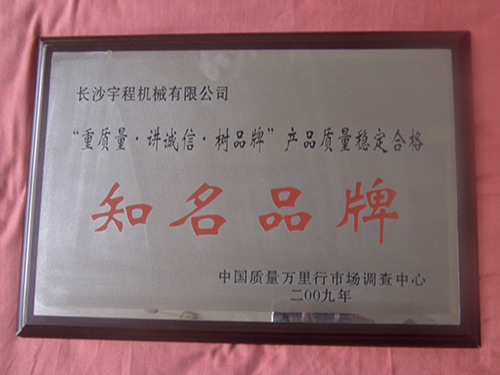 长沙宇程机械有限公司
“重质量·讲诚信·树品牌”产品质量稳定合格
知名品牌
中国质量万里行市场调查中心
二00九年